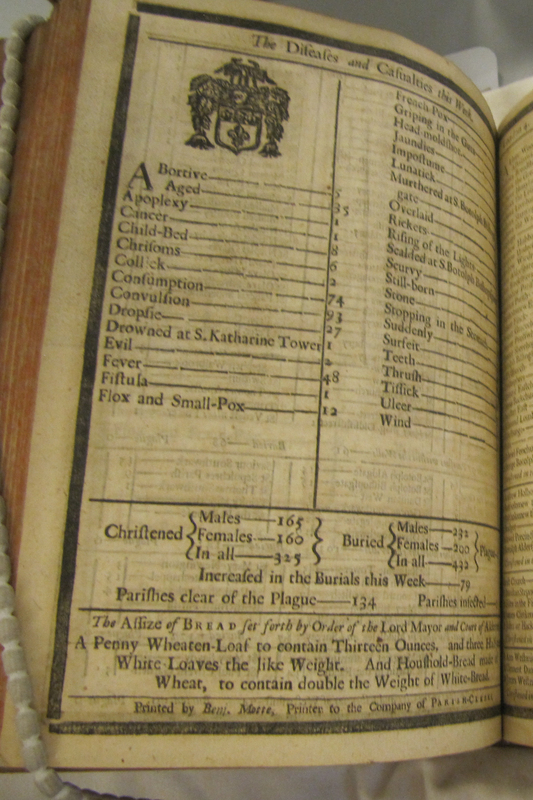 The Diseases and Casualties this Week.
Abortive 5
Aged 35
Apoplexy 1
Cancer 1
Child-Bed 8
Chrisoms 6
Collick 2
Consumption 74
Convulsion 93
Dropsie 27
Drowned at S. Katharine Tower 1
Evil 2
Fever 48
Fistula 1
Flox and Small-Pox 12
French-Pox
Griping in the Guts
Head-moldshot
Jaundies
Impostume
Lunatick
Murthered at S. Botolph
gate
Overlaid
Rickets
Rising of the Lights
Scalded at S. Botolph
Scurvy
Still-born
Stone
Stopping in the Stomach
Suddenly
Surfeit
Teeth
Thrush
Tissick
Ulcer
Wind
Christened Males 165 Females 160 In all 325
Buried Males 232 Females 200 In all 432 Plague
Increased in the Burials this Week 79
Parishes clear of the Plague 134 Parishes infected
The Assize of BREAD set forth by Order of the Lord Mayor and Court of
A Penny Wheaten-Loaf to contain Thirteen Ounces, and three
White-Loaves the like Weight. And Houshold-Bread made
Wheat, to contain double the Weight of White-Bread.
Printed by Benj. Motte, Printer to the Company of PARISH-CLERKS